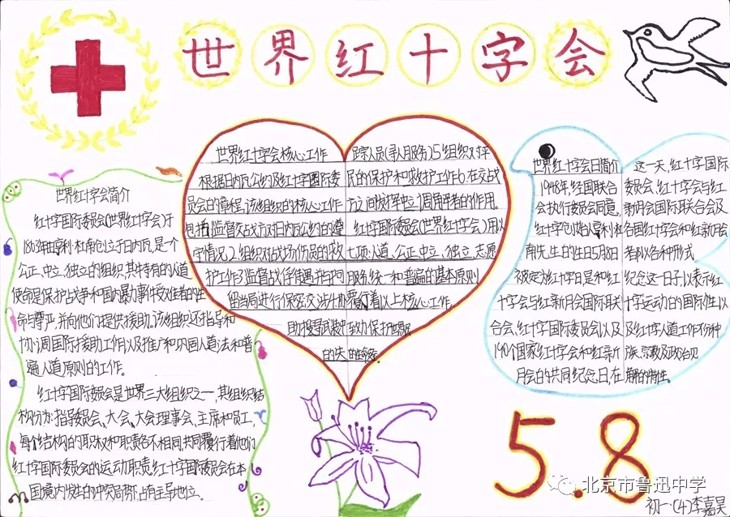 世界红十字会
世界红十字会简介
红十字国际委员会(世界红十字会)于
1863年由亨利·杜南创立于日内瓦,是个
公正、中立、独立的组织,其特有的人道
使命是保护战争和国内暴力事件受难者的生
命与尊严,并向他们提供援助。该组织还指导和
协调国际援助工作,以及推广和巩固人道法和普
遍人道原则的工作。
红十字国际委员会是世界三大组织之一,其组织结
构分为:指导委员会、大会、大会理事会、主席和员工,
每个结构的职权和职责各不相同,共同履行着他们
红十字国际委员会的运动职责,红十字国际委员会在本
国境内发生的冲突局势占有主导地位。
世界红十字会核心工作
根据日内瓦公约及红十字国际委
员会的章程,该组织的核心工作
包括:1.监督交战方对日内瓦公约的遵
守情况;2.组织对战场伤员的救
护工作;3.监督战俘待遇并与拘
留当局进行保密交涉;4.协
助搜寻武装
的失
踪人员(寻人服务);5.组织对平
民的保护和救护工作;6.在交战
方之间发挥中立调停者的作用。
红十字国际委员会(世界红十字会)用以
七项人道、公正、中立、独立、志愿
服务、统一和普遍的基本原则
着以上核心工作,
致力保护
生命
世界红十字会日简介
1948年,经国联合
会执行委员会同意,
红十字创始人亨利·杜
南先生的生日5月8日
被定为红十字日是和红
十字会与红新月会国际联
合会、红十字国际委员会以及
190个国家红十字会和红新
月会的共同纪念日,在
这一天,红十字国际
委员会,红十字会与红
新月会国际联合会及
各国红十字会和红新月会
都以各种形式
纪念这一日子,以表示红
十字运动的国际性以
及红十字人道工作不分种
族、宗教及政治见
解的特性。
5.8
北京市鲁迅中学
初一(4)李嘉昊